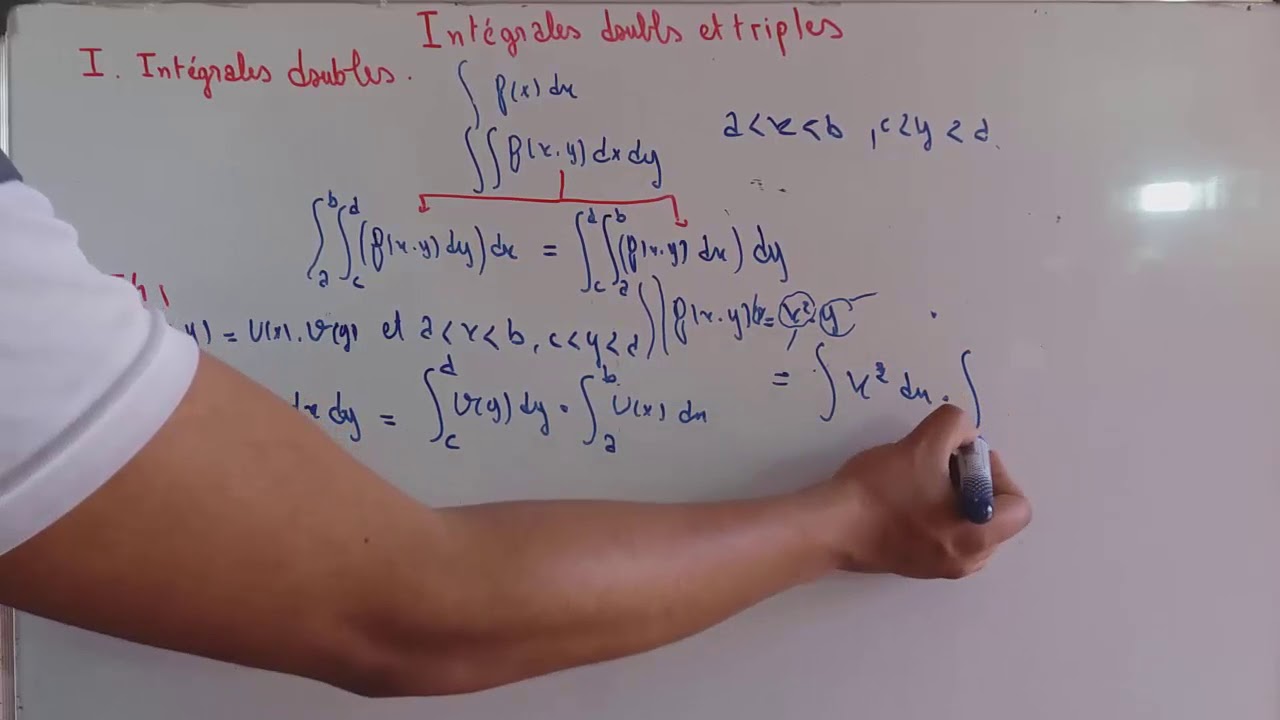 Intégrales doubls et triples
I. Intégrales doubles.
∫ f(x) dx
∫∫ f(x.y) dx dy
a < x < b , c < y < d.
∫_a^b ∫_c^d (f(x.y) dy) dx = ∫_c^d ∫_a^b (f(x.y) dx) dy
y) = U(x). V(y) et a < x < b, c < y < d
∫∫ f(x.y) = x². y
dx dy = ∫_c^d V(y) dy . ∫_a^b U(x) dx
= ∫ x² dx . ∫